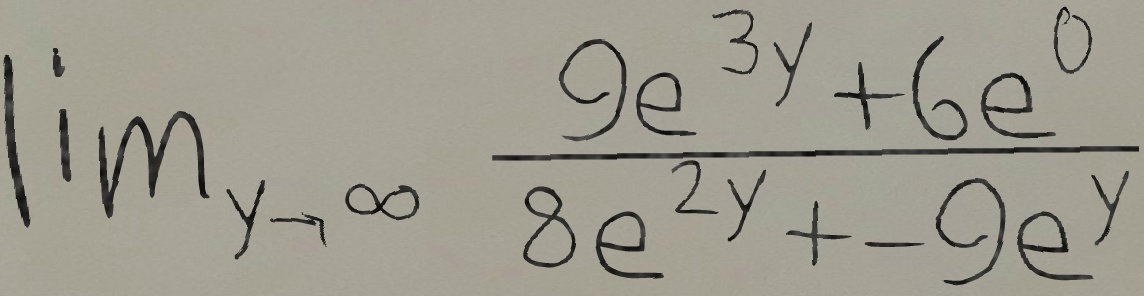 lim_{y→∞} \frac{9e^{3y}+6e^{0}}{8e^{2y}+-9e^{y}}